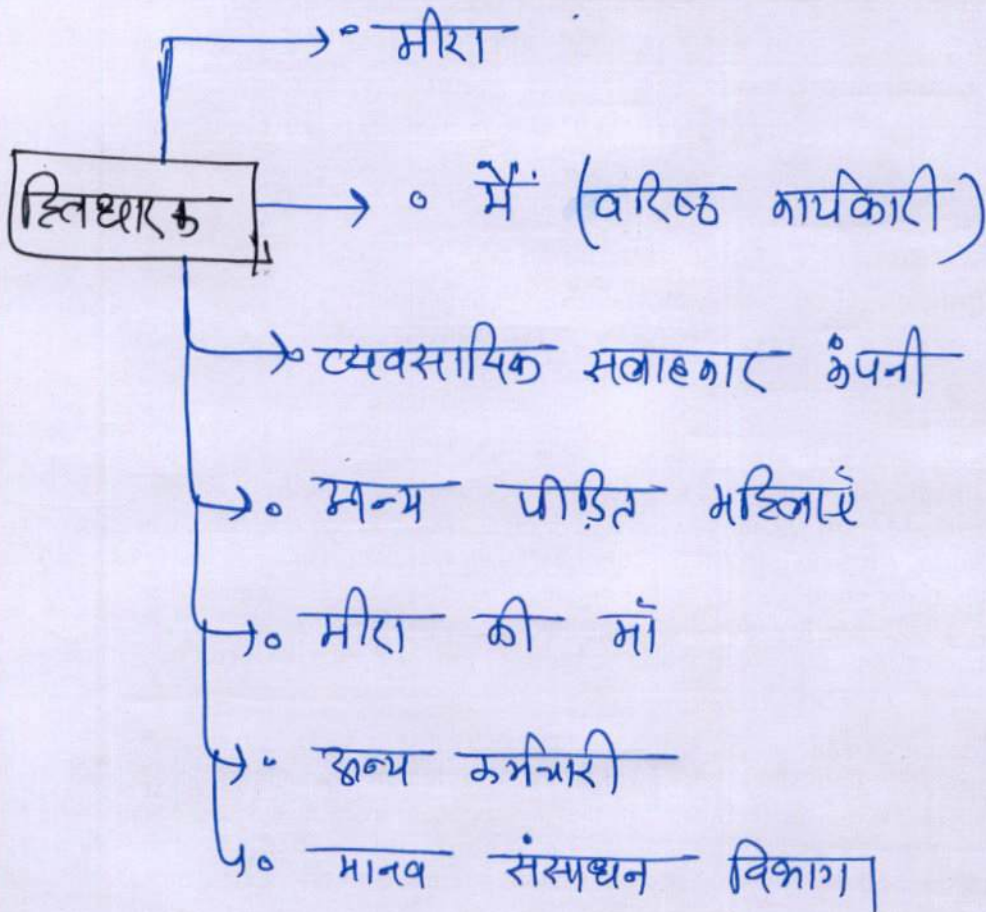 मीरा
हितधारक
मैं (वरिष्ठ कार्यकारी)
व्यवसायिक सलाहकार कंपनी
अन्य पीड़ित महिलाएं
मीरा की माँ
अन्य कर्मचारी
मानव संसाधन विभाग